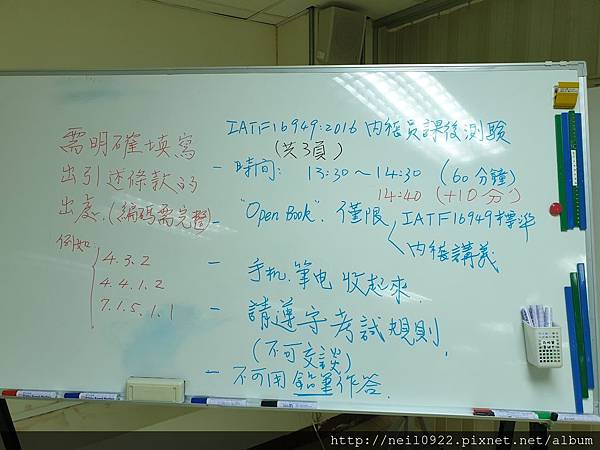 需明確填寫
出引述條款的
出處.(編碼需完整)
例如
4.3.2
4.4.1.2
7.1.5.1.1
IATF16949:2016 內稽員課後測驗
(共3頁)
- 時間: 13:30~14:30 (60分鐘)
14:40 (+10分)
- "Open Book". 僅限 IATF16949標準
內稽講義
- 手机.筆电 收起來.
- 請遵守考試規則.
(不可交談)
- 不可用鉛筆作答.
http://neil0922.pixnet.net/album